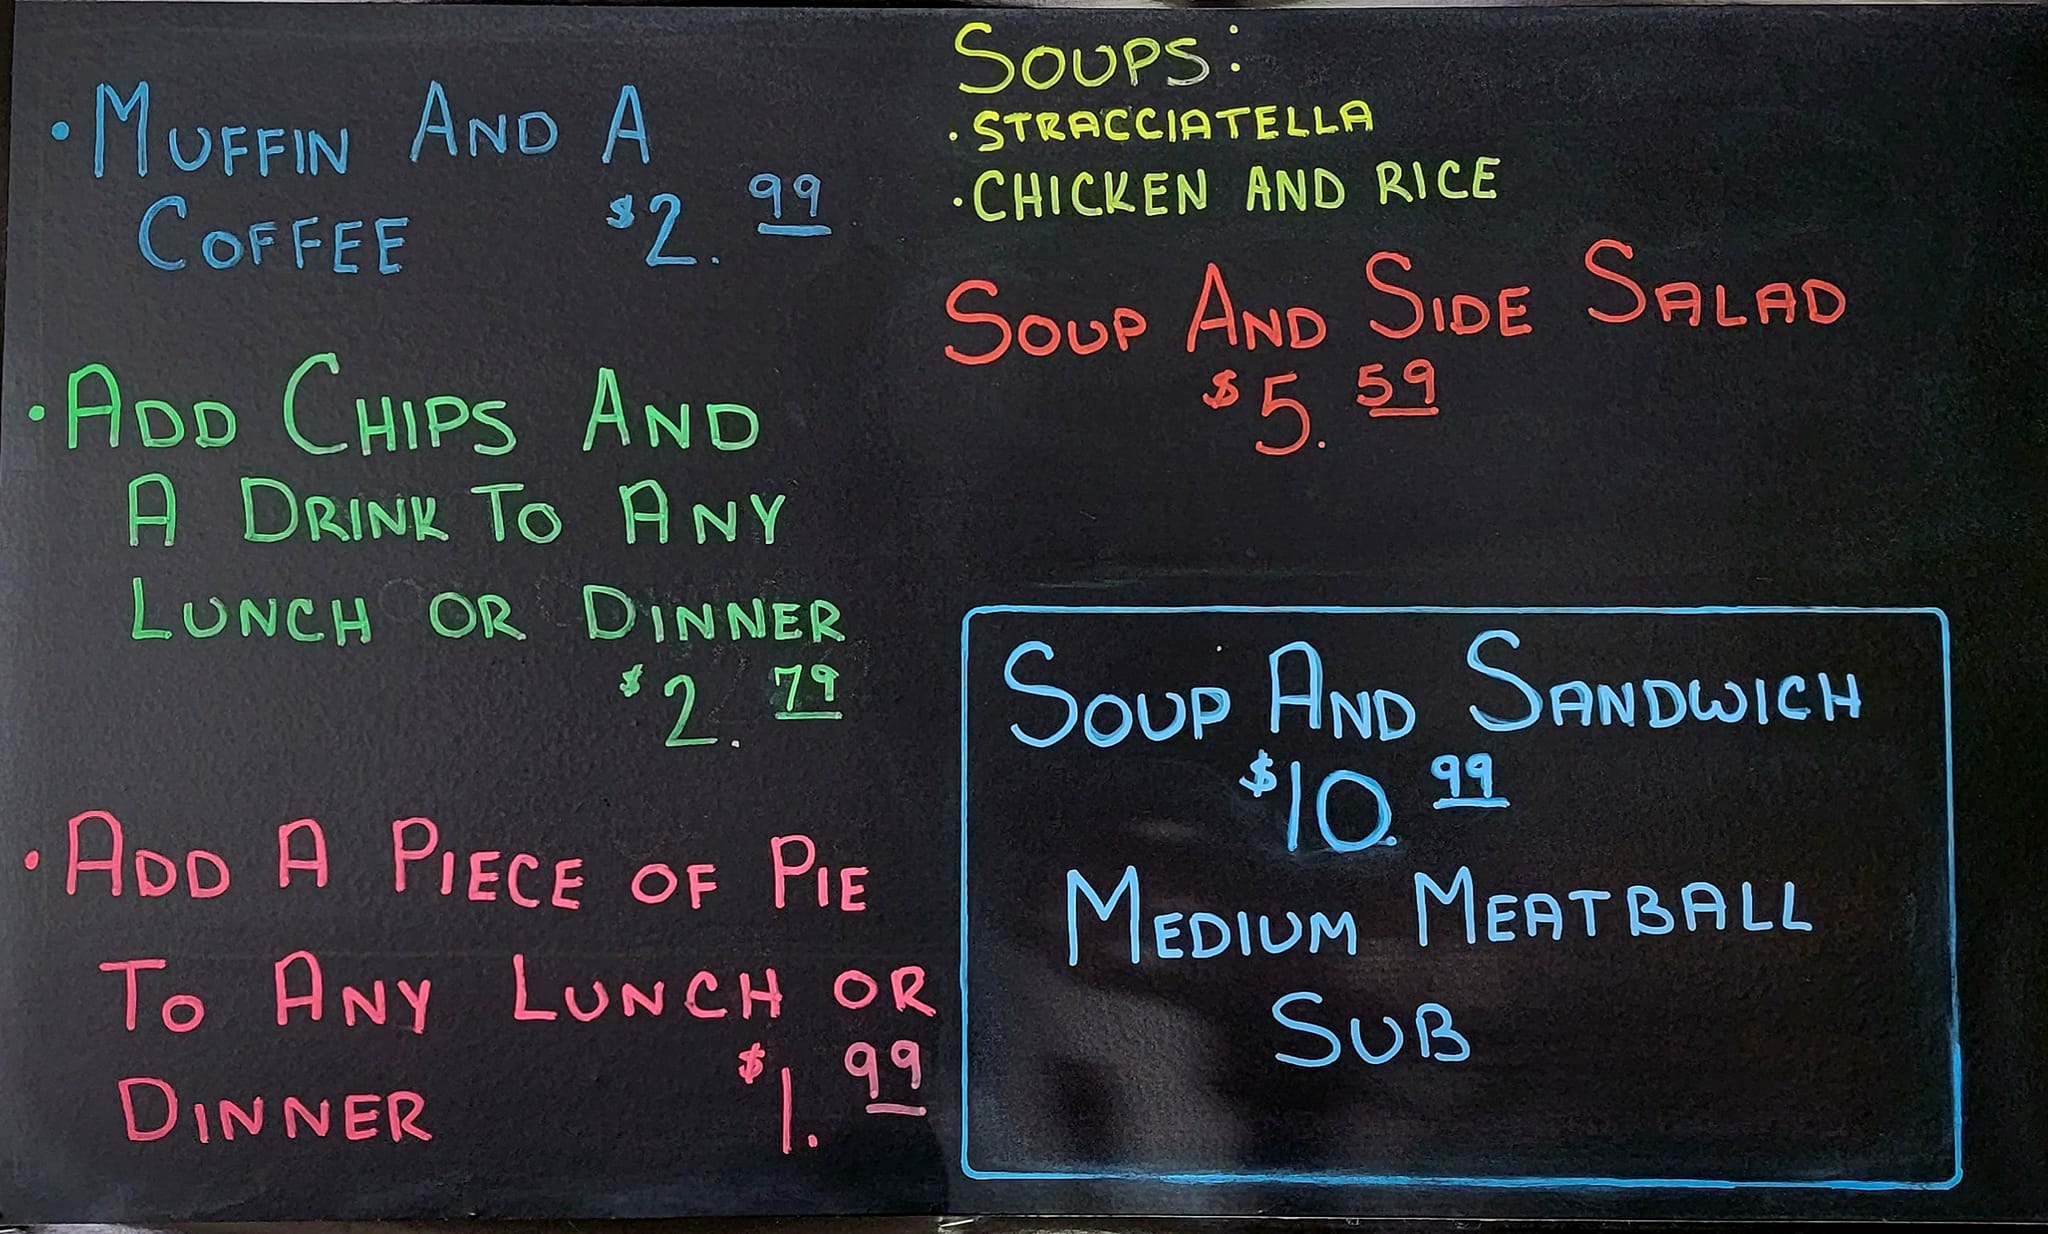 • MUFFIN AND A
COFFEE $2.99
• ADD CHIPS AND
A DRINK TO ANY
LUNCH OR DINNER
$2.79
• ADD A PIECE OF PIE
TO ANY LUNCH OR
DINNER $1.99
SOUPS:
• STRACCIATELLA
• CHICKEN AND RICE
SOUP AND SIDE SALAD
$5.59
SOUP AND SANDWICH
$10.99
MEDIUM MEATBALL
SUB